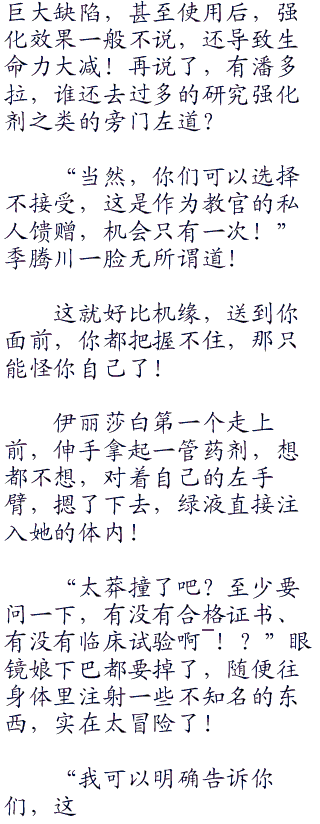 巨大缺陷，甚至使用后，强
化效果一般不说，还导致生
命力大减！再说了，有潘多
拉，谁还去过多的研究强化
剂之类的旁门左道？
“当然，你们可以选择
不接受，这是作为教官的私
人馈赠，机会只有一次！”
季腾川一脸无所谓道！
这就好比机缘，送到你
面前，你都把握不住，那只
能怪你自己了！
伊丽莎白第一个走上
前，伸手拿起一管药剂，想
都不想，对着自己的左手
臂，摁了下去，绿液直接注
入她的体内！
“太莽撞了吧？至少要
问一下，有没有合格证书、
有没有临床试验啊¯！？”眼
镜娘下巴都要掉了，随便往
身体里注射一些不知名的东
西，实在太冒险了！
“我可以明确告诉你
们，这